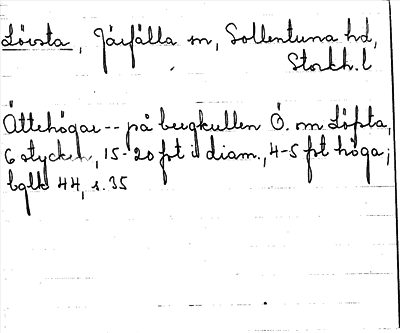 Lövsta, Järfälla sn, Sollentuna hd,
Stockh. l
Ättehögar -- på bergkullen Ö. om Löfsta,
6 stycken, 15-20 fot i diam., 4-5 fot höga;
bglk 44, s. 35